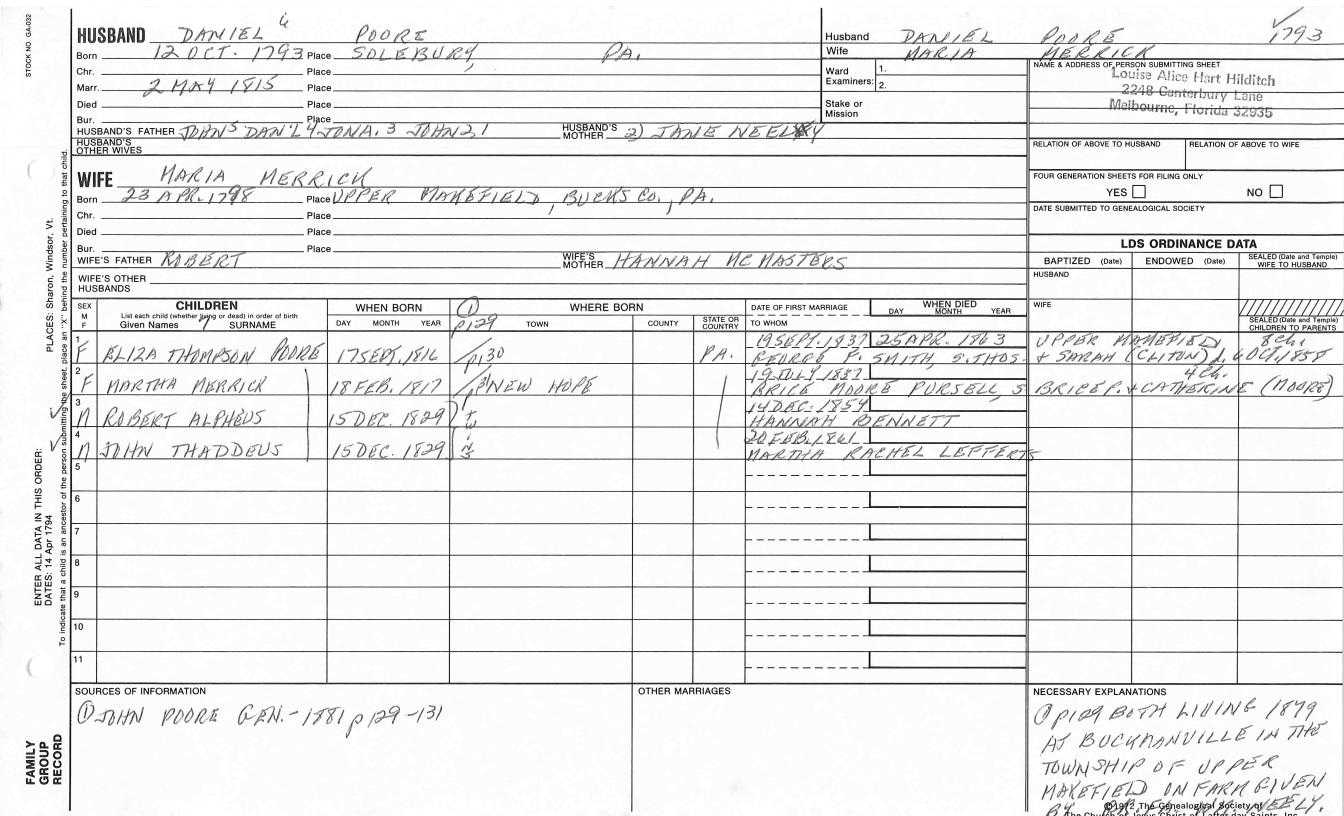 STOCK NO. GA-032
HUSBAND DANIEL 6 POORE
Born 12 OCT. 1793 Place SOLEBURY, PA.
Chr. Place
Marr. 2 MAY 1815 Place
Died Place
Bur. Place
HUSBAND'S FATHER JOHN5 DAN'L4 JONA.3 JOHN2,1 HUSBAND'S MOTHER 2) JANE NEELY
HUSBAND'S OTHER WIVES
Husband DANIEL POORE 1793
Wife MARIA MERRICK
Ward Examiners: 1.
2.
Stake or Mission
NAME & ADDRESS OF PERSON SUBMITTING SHEET
Louise Alice Hart Hilditch
2248 Canterbury Lane
Melbourne, Florida 32935
RELATION OF ABOVE TO HUSBAND RELATION OF ABOVE TO WIFE
FOUR GENERATION SHEETS FOR FILING ONLY
YES NO
DATE SUBMITTED TO GENEALOGICAL SOCIETY
WIFE MARIA MERRICK
Born 23 APR. 1798 Place UPPER MAKEFIELD, BUCKS CO., PA.
Chr. Place
Died Place
Bur. Place
WIFE'S FATHER ROBERT WIFE'S MOTHER HANNAH MCMASTERS
WIFE'S OTHER HUSBANDS
LDS ORDINANCE DATA
BAPTIZED (Date) ENDOWED (Date) SEALED (Date and Temple) WIFE TO HUSBAND
HUSBAND
WIFE
SEALED (Date and Temple) CHILDREN TO PARENTS
SEX M F
CHILDREN
List each child (whether living or dead) in order of birth
Given Names SURNAME
WHEN BORN
DAY MONTH YEAR
① p129
WHERE BORN
TOWN COUNTY STATE OR COUNTRY
DATE OF FIRST MARRIAGE
TO WHOM
WHEN DIED
DAY MONTH YEAR
1 F ELIZA THOMPSON POORE 17 SEPT. 1816 /p130 PA. 19 SEPT. 1837 25 APR. 1863 UPPER MAKEFIELD 8 ch.
GEORGE P. SMITH, S. THOS. + SARAH
2 F MARTHA MERRICK 18 FEB. 1817 NEW HOPE 19 JULY 1837 4 ch.
BRICE MOORE PURSELL, S BRICE P. + CATHERINE (MOORE)
3 M ROBERT ALPHEUS 15 DEC. 1829 TWINS 14 DEC. 1854
HANNAH BENNETT
4 M JOHN THADDEUS 15 DEC. 1829 20 FEB. 1861
MARTHA RACHEL LEFFERTS
5
6
7
8
9
10
11
PLACES: Sharon, Windsor, Vt.
ENTER ALL DATA IN THIS ORDER:
DATES: 14 Apr 1794
To indicate that a child is an ancestor of the person submitting the sheet, place an "X" behind the number pertaining to that child.
FAMILY GROUP RECORD
SOURCES OF INFORMATION
① JOHN POORE GEN.-1881 p129-131
OTHER MARRIAGES
NECESSARY EXPLANATIONS
① p129 BOTH LIVING 1879
AT BUCKMANVILLE IN THE
TOWNSHIP OF UPPER
MAKEFIELD ON FARM GIVEN
BY NEELY.
©1972 The Genealogical Society of
The Church of Jesus Christ of Latter-day Saints, Inc.